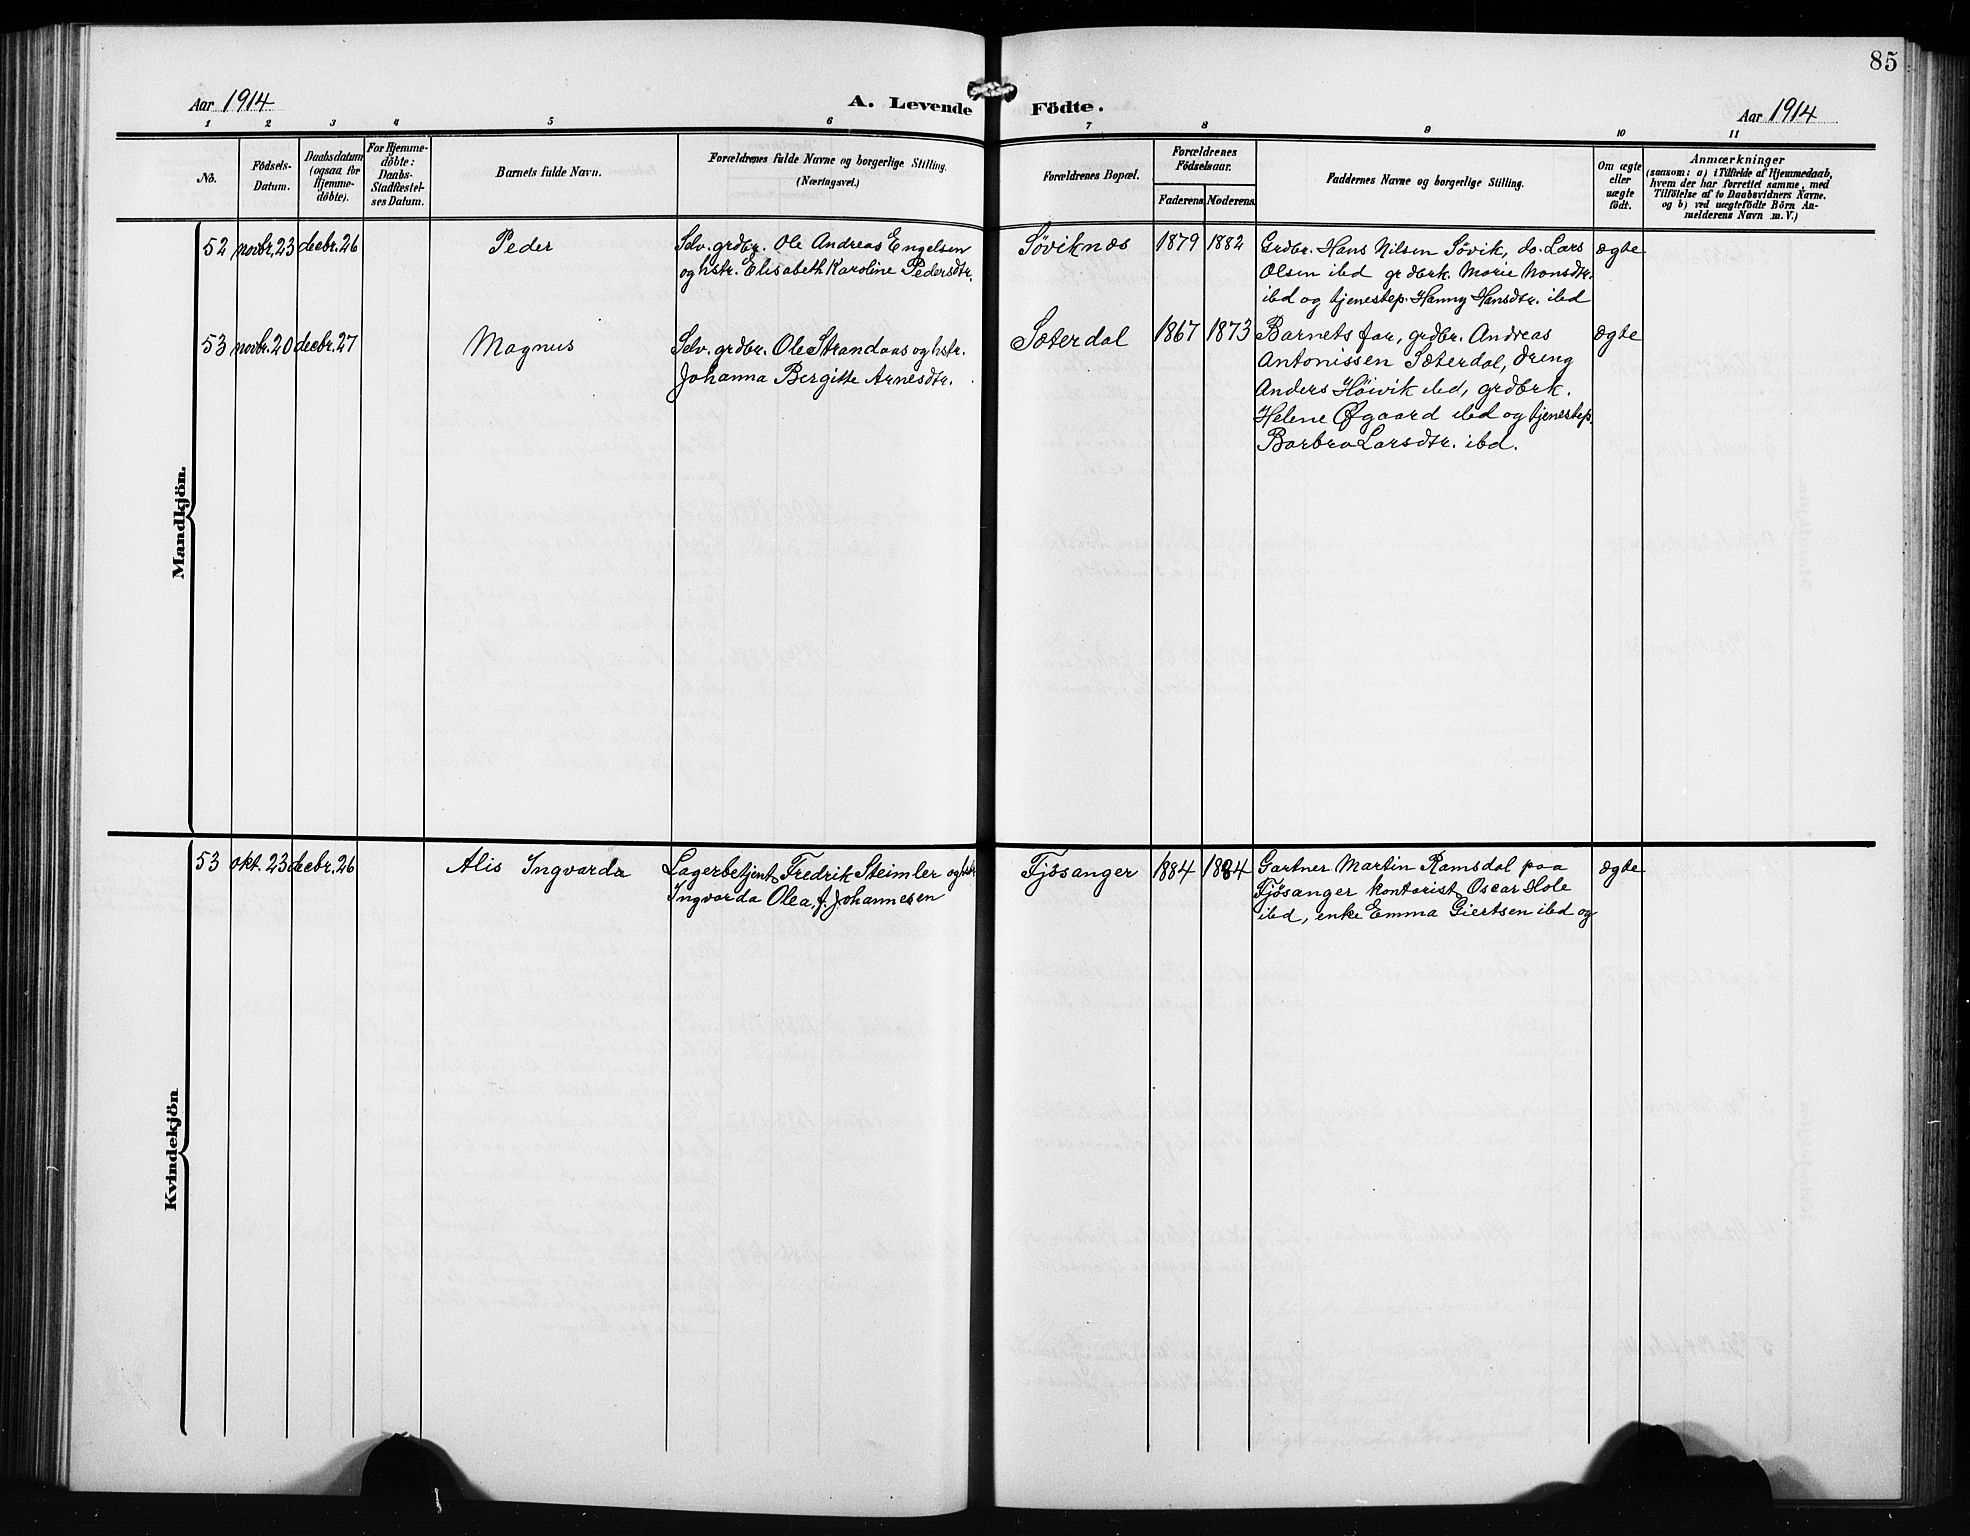 85
Aar 1914
A. Levende Födte.
Aar 1914
1 2 3 4 5 6 7 8 9 10 11
No.
Födsels-
Datum.
Daabsdatum
(ogsaa for
Hjemme-
döbte).
For Hjemme-
döbte:
Daabs-
Stadfæstel-
ses Datum.
Barnets fulde Navn.
Forældrenes fulde Navne og borgerlige Stilling.
(Næringsvei.)
Forældrenes Bopæl.
Forældrenes
Födselsaar.
Faderens Moderens
Faddernes Navne og borgerlige Stilling.
Om ægte
eller
uægte
födt.
Anmærkninger
(saasom: a) i Tilfælde af Hjemmedaab,
hvem der har forrettet samme, med
Tilföielse af to Daabsvidners Navne.
og b) ved uægtefödte Börn An-
melderens Navn m. V.)
Mandkjön.
52 novbr. 23 decbr. 26 Peder
Selv. grdbr. Ole Andreas Engelsen
og hstr. Elisabeth Karoline Pedersdtr.
Søviknæs 1879 1882
Grdbr. Hans Nilsen Søvik, do. Lars
Olsen ibd grdbrk. Marie Monsdtr.
ibd og tjenestep. Hanny Hansdtr. ibd
ægte
53 novbr. 20 decbr. 27 Magnus
Selv. grdbr. Ole Strandaas og hstr.
Johanna Bergitte Arnesdtr.
Sæterdal 1867 1873
Barnets far, grdbr. Andreas
Antonissen Sæterdal, dreng
Anders Høivik ibd, grdbrk.
Helene Øfgaard ibd og tjenestep.
Barbra Larsdtr. ibd.
ægte
Kvindekjön
53 okt. 23 decbr. 26 Alis Ingvarda
Lagerbetjent Fredrik Steimler og hstr.
Ingvarda Olea, f. Johannesen
Fjösanger 1884 1884
Gartner Martin Ramsdal paa
Fjösanger kontorist Oscar Hole
ibd, enke Emma Giertsen ibd og
ægte